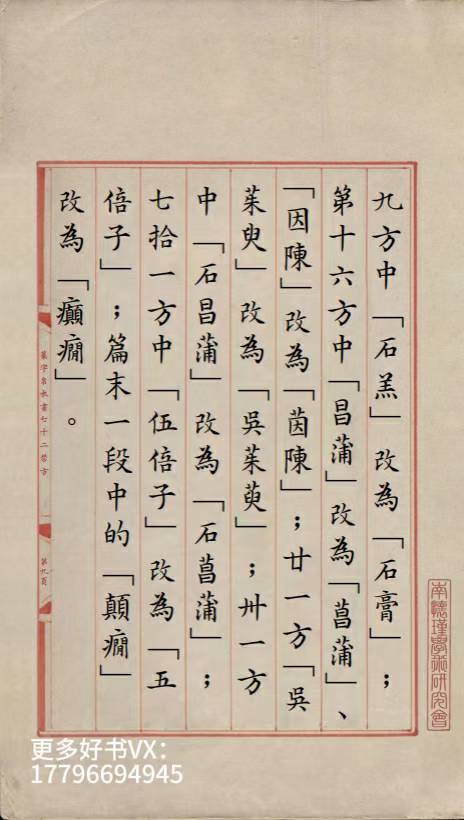 九方中「石羔」改為「石膏」；
第十六方中「昌蒲」改為「菖蒲」、
「因陳」改為「茵陳」；廿一方「吳
茱臾」改為「吳茱萸」；卅一方
中「石昌蒲」改為「石菖蒲」；
七拾一方中「伍倍子」改為「五
倍子」；篇末一段中的「顛癇」
改為「癲癇」。
七十二
第九頁
南懷瑾學術研究會
更多好书VX：
17796694945